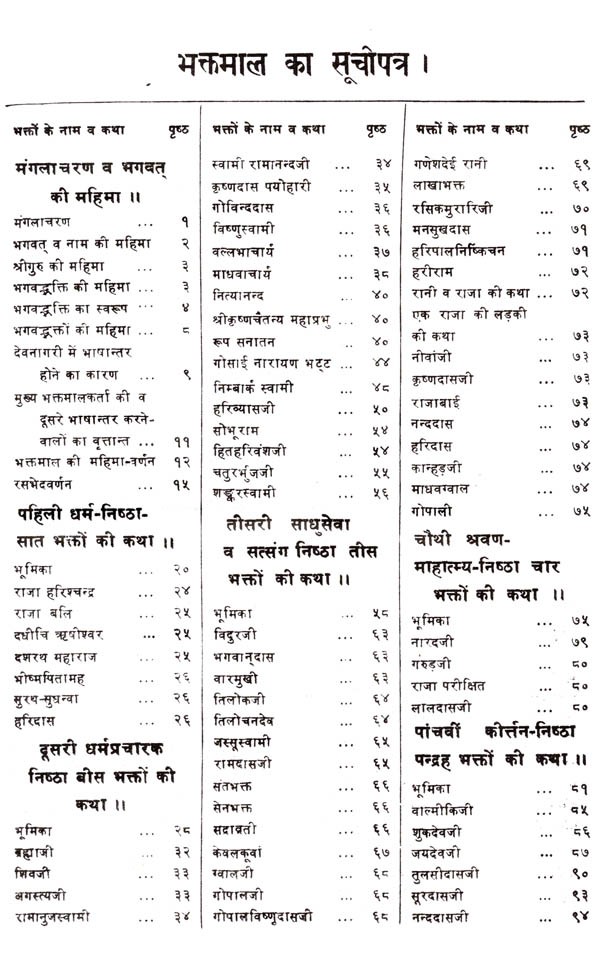 भक्तमाल का सूचीपत्र ।
भक्तों के नाम व कथा पृष्ठ
मंगलाचरण व भगवत्
की महिमा ॥
मंगलाचरण ... १
भगवत् व नाम की महिमा २
श्रीगुरु की महिमा ... ३
भगवद्भक्ति की महिमा ... ३
भगवद्भक्ति का स्वरूप ... ४
भगवद्भक्तों की महिमा ... ८
देवनागरी में भाषान्तर
होने का कारण ... ९
मुख्य भक्तमालकर्ता की व
दूसरे भाषान्तर करने-
वालों का वृत्तान्त ... ११
भक्तमाल की महिमा-वर्णन १२
रसभेदवर्णन ... १५
पहिली धर्म-निष्ठा-
सात भक्तों की कथा ॥
भूमिका ... २०
राजा हरिश्चन्द्र ... २४
राजा बलि ... २५
दधीचि ऋषीश्वर ... २५
दशरथ महाराज ... २५
भीष्मपितामह ... २६
सुरथ-सुधन्वा ... २६
हरिदास ... २६
दूसरी धर्मप्रचारक
निष्ठा बीस भक्तों की
कथा ॥
भूमिका ... २८
ब्रह्माजी ... ३२
शिवजी ... ३३
अगस्त्यजी ... ३३
रामानुजस्वामी ... ३४
भक्तों के नाम व कथा पृष्ठ
स्वामी रामानन्दजी ... ३४
कृष्णदास पयोहारी ... ३५
गोविन्ददास ... ३६
विष्णुस्वामी ... ३६
वल्लभाचार्य ... ३७
माधवाचार्य ... ३८
नित्यानन्द ... ४०
श्रीकृष्णचैतन्य महाप्रभु ... ४०
रूप सनातन .. ४०
गोसाईं नारायण भट्ट ... ४४
निम्बार्क स्वामी ... ४८
हरिव्यासजी ... ५०
सोभूराम ... ५४
हितहरिवंशजी ... ५४
चतुर्भुजजी ... ५५
शङ्करस्वामी ... ५६
तीसरी साधुसेवा
व सत्संग निष्ठा तीस
भक्तों की कथा ॥
भूमिका ... ५८
विदुरजी ... ६३
भगवान्दास ... ६३
वारमुखी ... ६३
तिलोकजी ... ६४
तिलोचनदेव ... ६४
जस्सूस्वामी ... ६५
रामदासजी ... ६५
संतभक्त ... ६६
सेनभक्त ... ६६
सदाव्रती ... ६६
केवलकूवां ... ६७
ग्वालजी ... ६८
गोपालजी ... ६८
गोपालविष्णुदासजी ... ६८
भक्तों के नाम व कथा पृष्ठ
गणेशदेई रानी ... ६९
लाखाभक्त ... ६९
रसिकमुरारिजी ... ७०
मनसुखदास ... ७१
हरिपालनिष्किंचन ... ७१
हरीराम ... ७२
रानी व राजा की कथा ... ७२
एक राजा की लड़की
की कथा ... ७३
नीवांजी ... ७३
कृष्णदासजी ... ७३
राजाबाई ... ७३
नन्ददास ... ७४
हरिदास ... ७४
कान्हड़जी ... ७४
माधवग्वाल ... ७४
गोपाली ... ७५
चौथी श्रवण-
माहात्म्य-निष्ठा चार
भक्तों की कथा ॥
भूमिका ... ७५
नारदजी ... ७९
गरुड़जी ... ८०
राजा परीक्षित ... ८०
लालदासजी ... ८०
पांचवीं कीर्त्तन-निष्ठा
पन्द्रह भक्तों की कथा ॥
भूमिका ... ८१
वाल्मीकिजी ... ८५
शुकदेवजी ... ८६
जयदेवजी ... ८७
तुलसीदासजी ... ९०
सूरदासजी ... ९३
नन्ददासजी ... ९४